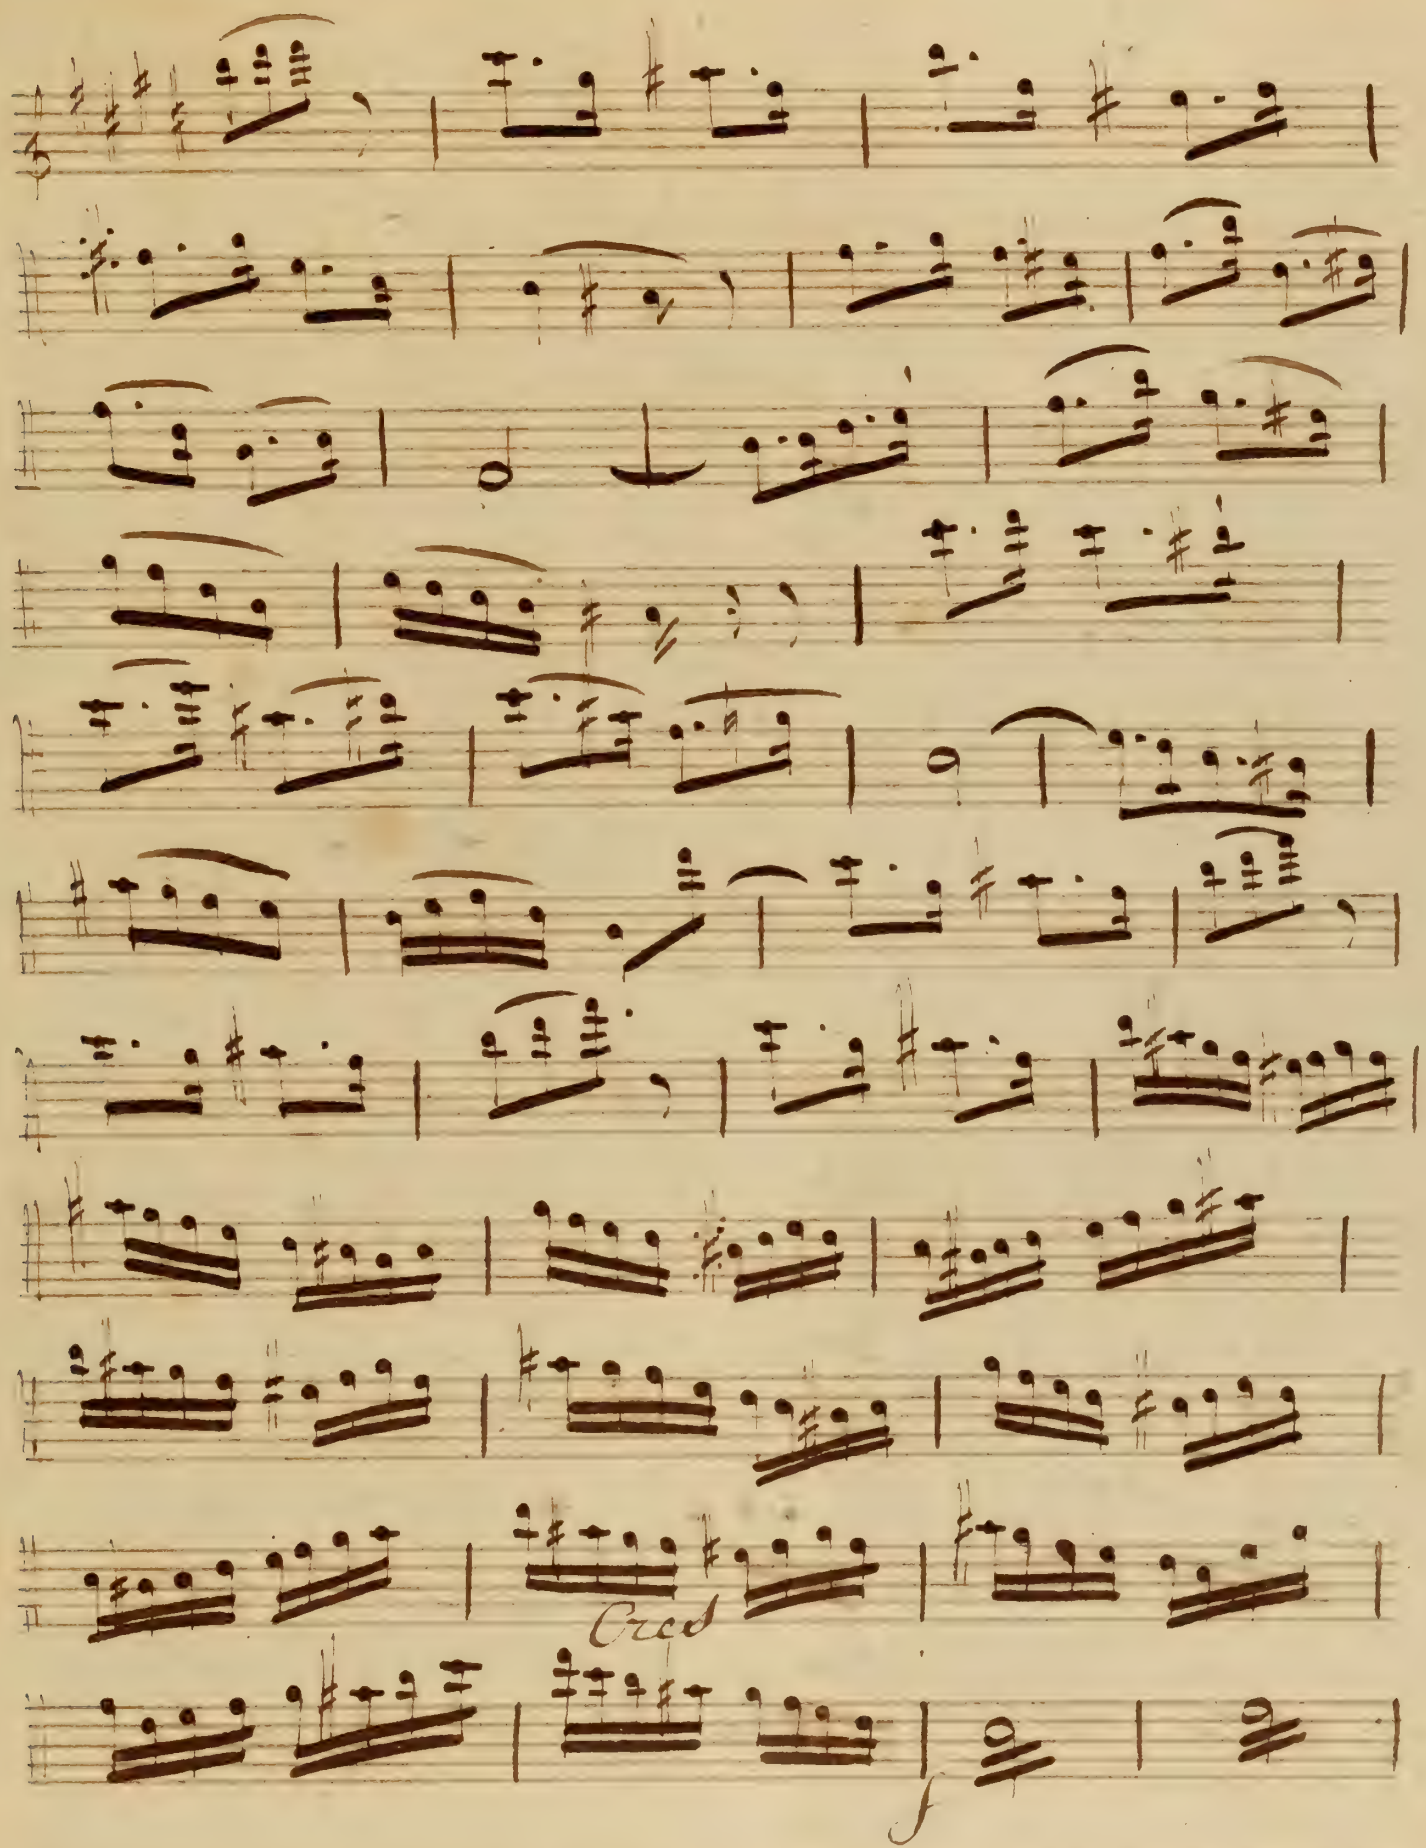 Cres
f